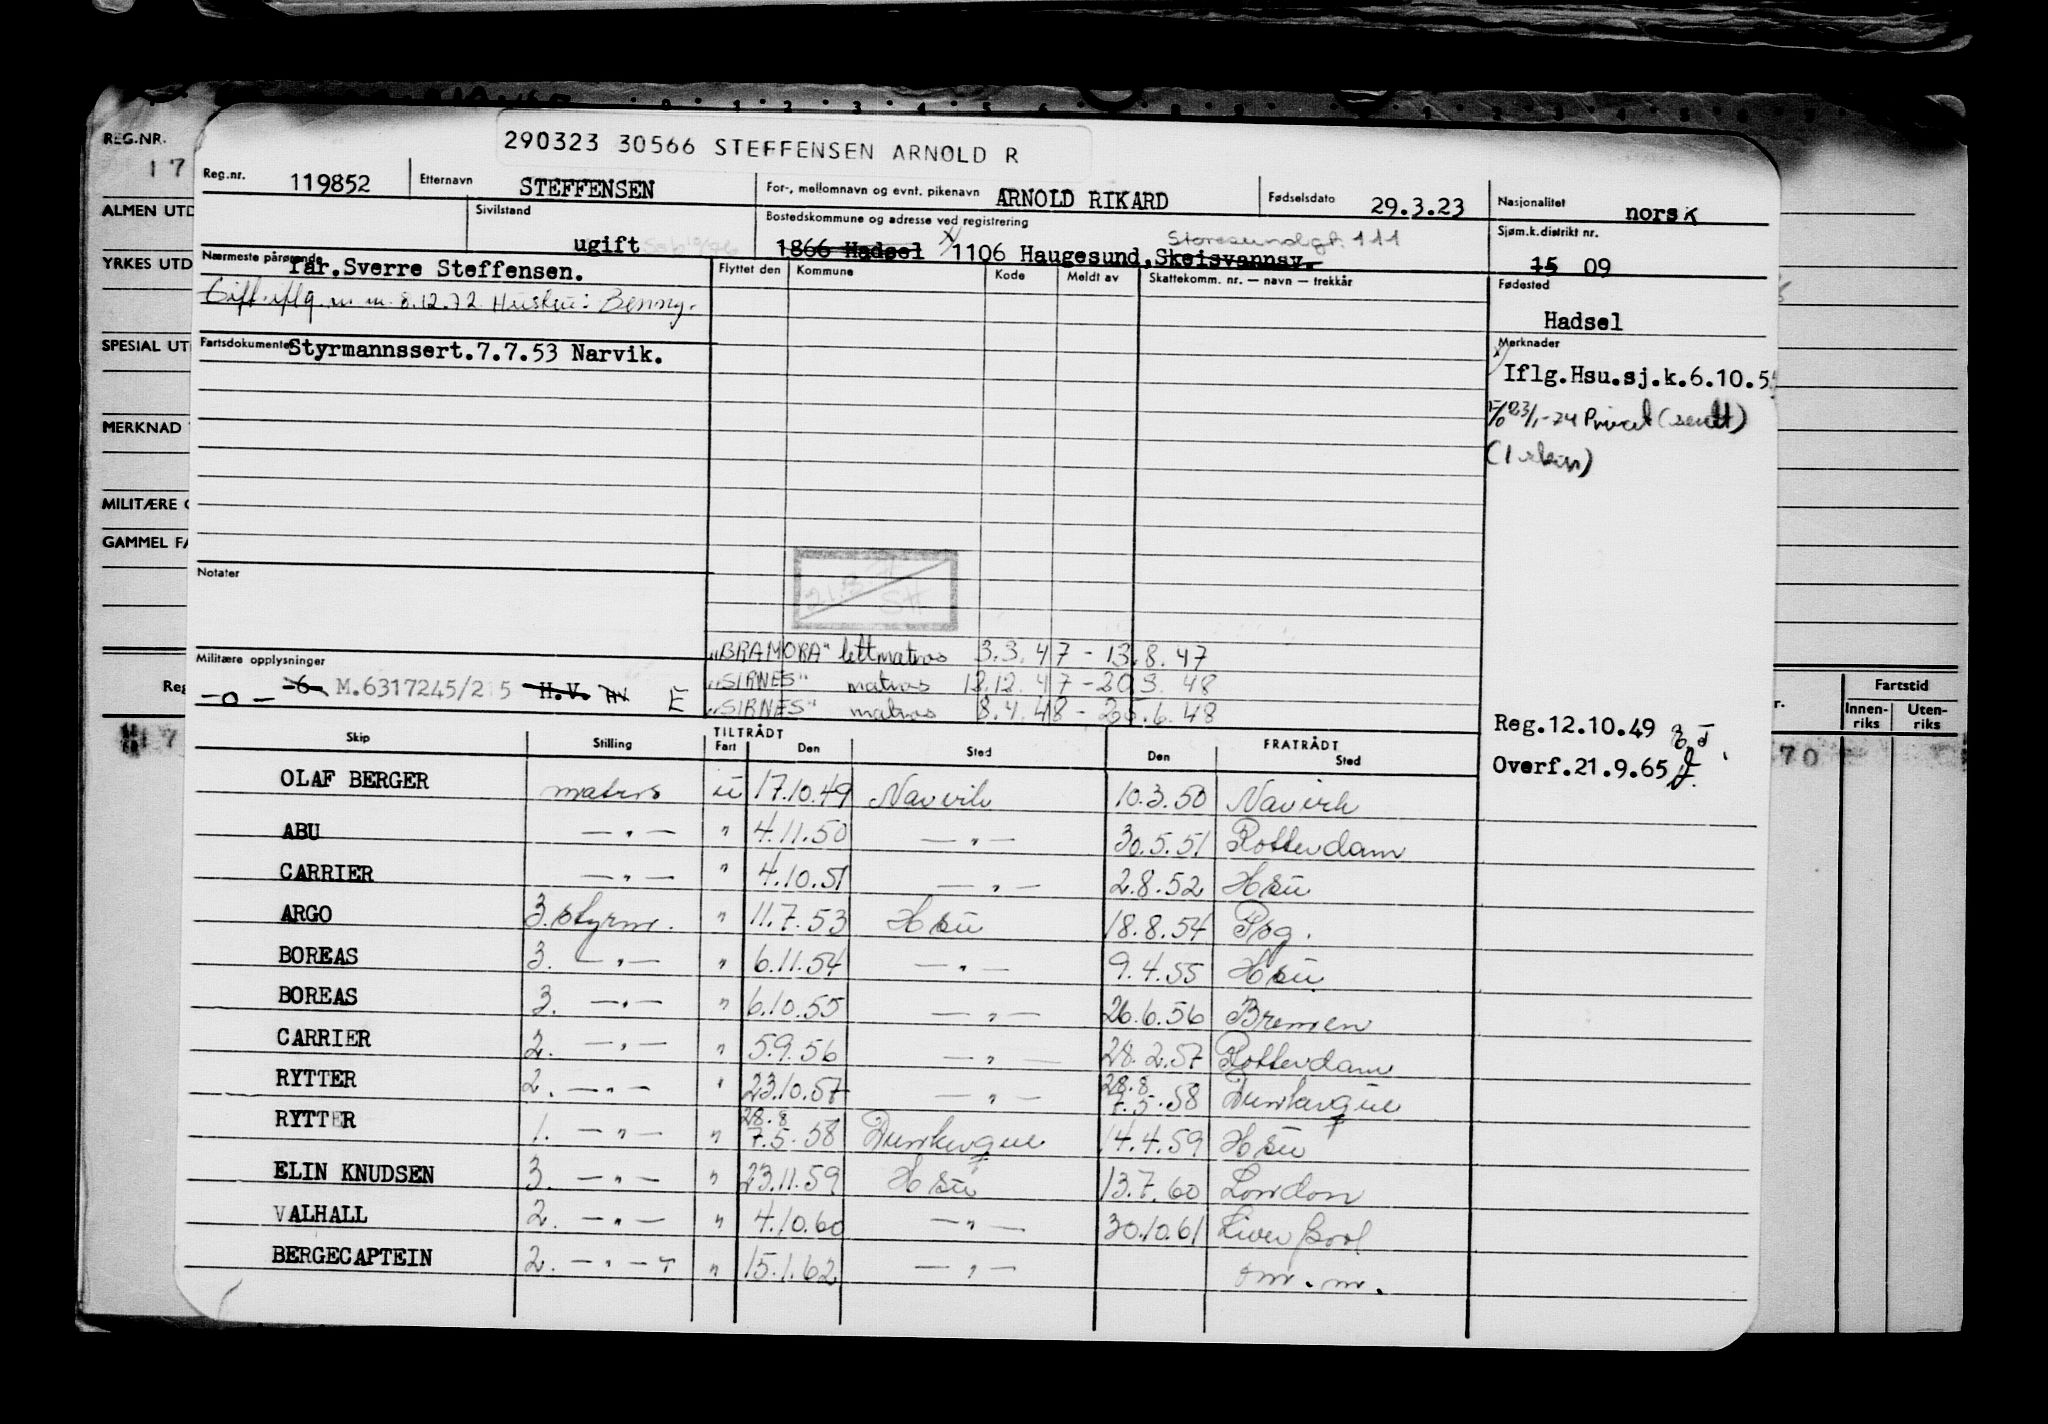 290323 30566 STEFFENSEN ARNOLD R
REG.NR.
17
ALMEN UTD
YRKES UTD
SPESIAL UT
MERKNAD
MILITÆRE
GAMMEL FA
Reg.nr. 119852 Etternavn STEFFENSEN For-, mellomnavn og evnt. pikenavn ARNOLD RIKARD Fødselsdato 29.3.23 Nasjonalitet norsk
Sivilstand ugift Bostedskommune og adresse ved registrering Storesundgt. 111
1866 Hadsel 1106 Haugesund, Skeisvannsv.
Sjøm.k.distrikt nr. 15 09
Nærmeste pårørende Far. Sverre Steffensen.
Gift iflg. m.m. 8.12.72 Hustru: Benny.
Flyttet den Kommune Kode Meldt av Skattekomm. nr. — navn — trekkår
Fødested Hadsel
Fartsdokumenter Styrmannssert.7.7.53 Narvik.
Merknader
Iflg.Hsu.sj.k.6.10.5
23/1-74 Privat (sendt)
Notater
21.
SH
"BRAMORA" lettmatros 3.3.47 - 13.8.47
"SIRNES" matros 12.12.47 - 20.3.48
"SIRNES" matros 8.4.48 - 25.6.48
Militære opplysninger
-o- -6- M.6317245/215 H.V. E
Reg.12.10.49
Overf.21.9.65
Skip Stilling TILTRÅDT Fart Den Sted FRATRÅDT Den Sted
OLAF BERGER matros u 17.10.49 Narvik 10.3.50 Narvik
ABU — " — " 4.11.50 — " — 30.5.51 Rotterdam
CARRIER — " — " 4.10.51 — " — 2.8.52 Hsu
ARGO 3. styrm. " 11.7.53 Hsu 18.8.54 Psg.
BOREAS 3. — " — " 6.11.54 — " — 9.4.55 Hsu
BOREAS 3. — " — " 6.10.55 — " — 26.6.56 Bremen
CARRIER 2. — " — " 5.9.56 — " — 28.2.57 Rotterdam
RYTTER 2. — " — " 23.10.57 — " — 28.8 7.5.58 Dunkerque
RYTTER 1. — " — " 28.8 7.5.58 Dunkerque 14.4.59 Hsu
ELIN KNUDSEN 3. — " — " 23.11.59 Hsu 13.7.60 London
VALHALL 2. — " — " 4.10.60 — " — 30.10.61 Liverpool
BERGECAPTEIN 2. — " — " 15.1.62 — " — m.m.
Reg
17
r.
Fartstid
Innen-riks
Uten-riks
70